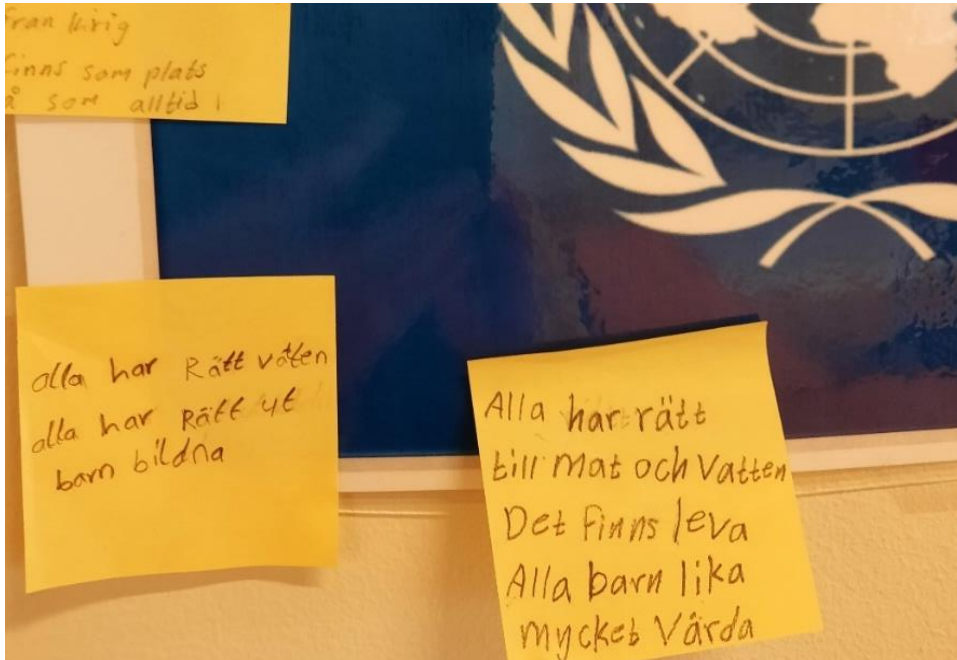 från krig
finns som plats
å som alltid i
alla har Rätt vatten
alla har Rätt ut
barn bildna
Alla har rätt
till Mat och Vatten
Det Finns leva
Alla barn lika
mycket Värda